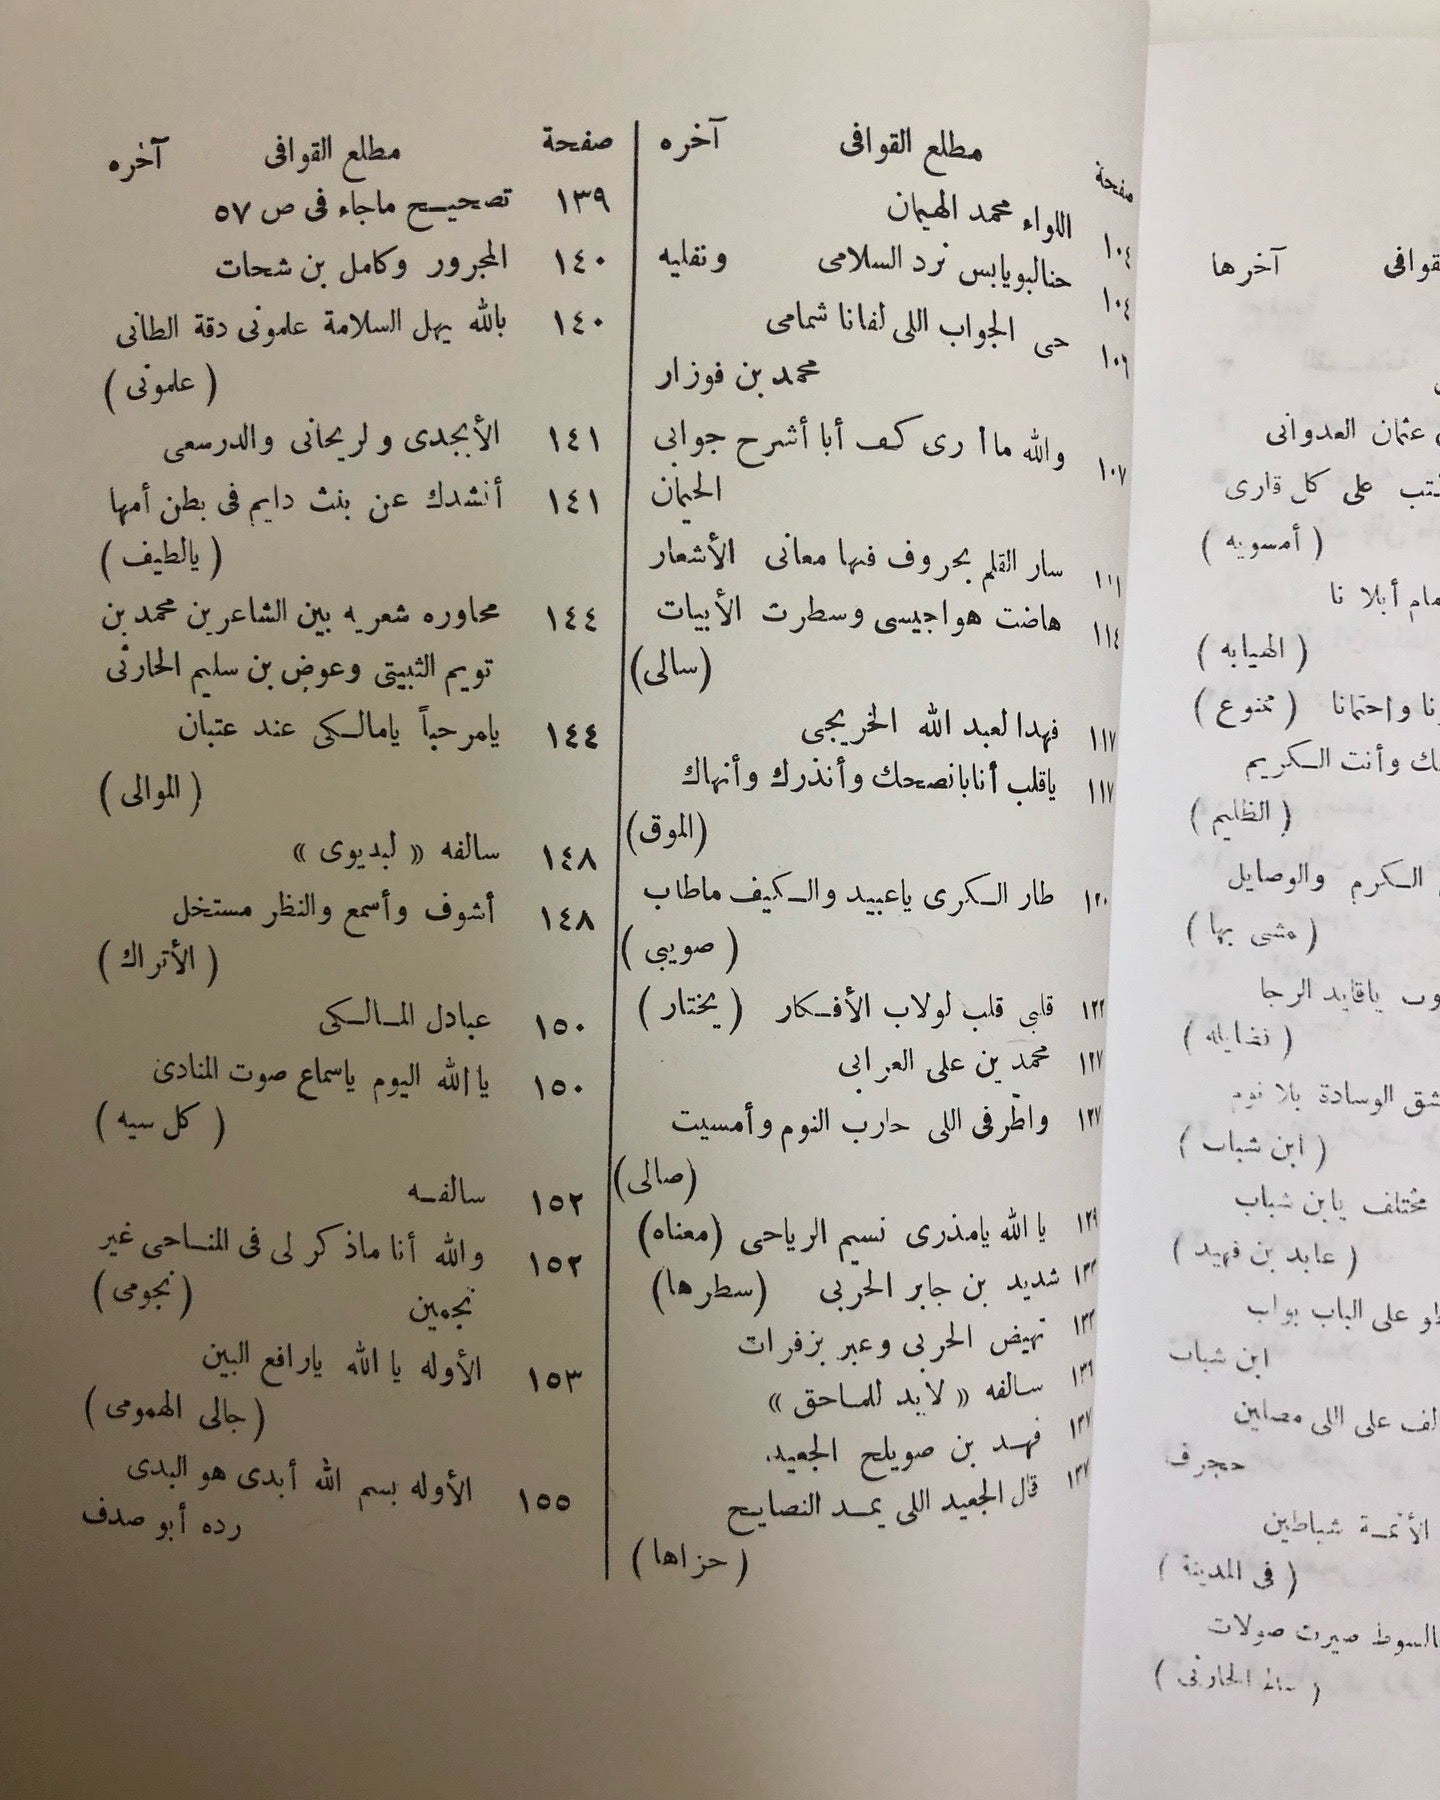 صفحة مطلع القوافى آخره
١٠٤ اللواء محمد الهيمان
١٠٤ حنالبويابس نرد السلامى ونفليه
١٠٦ حى الجواب اللى لفانا شمامى
محمد بن فوزار
١٠٧ والله ما أرى كف أبا أشرح جوابى
الحيمان
١١١ سار القلم بحروف فيها معانى الأشعار
١١٤ هاضت هواجيسى وسطرت الأبيات
(سالى)
١١٧ فهدا لعبد الله الخريجى
١١٧ ياقلب أنابانصحك وأنذرك وأنهاك
(الموق)
١٢٠ طار الكرى ياعبيد والكيف ماطاب
(صويبى)
١٢٢ قلبى قلب لولاب الأفكار (يختار)
١٢٧ محمد بن على العرابى
١٢٧ واطرفى اللى حارب النوم وأمسيت
(صالى)
١٢٩ يا الله يامذرى نسيم الرياحى (معناه)
١٣٣ شديد بن جابر الحربى (سطرها)
١٣٣ نهيض الحربى وعبر بزفرات
١٣٦ سالفه « لابد للماحق »
١٣٧ فهد بن صويلح الجعيد.
١٣٧ قال الجعيد اللى يمد النصايح
(حزاها)
صفحة مطلع القوافى آخره
١٣٩ تصحيح ماجاء فى ص ٥٧
١٤٠ المجرور وكامل بن شحات
١٤٠ بالله يهل السلامة علمونى دقة الطانى
(علمونى)
١٤١ الأبجدى ولريحانى والدرسعى
١٤١ أنشدك عن بنت دايم فى بطن أمها
(يالطيف)
١٤٤ محاوره شعريه بين الشاعرين محمد بن
تويم الثبيتى وعوض بن سليم الحارثى
١٤٤ يامرحباً يامالكى عند عتبان
(الموالى)
١٤٨ سالفه « لبديوى »
١٤٨ أشوف وأسمع والنظر مستخل
(الأتراك)
١٥٠ عبادل المالكى
١٥٠ يا الله اليوم ياسماع صوت المنادى
(كل سيه)
١٥٢ سالفه
١٥٢ والله أنا ماذكر لى فى المناحى غير
نجمين (نجومى)
١٥٣ الأوله يا الله يارافع البين
(جالى الهمومى)
١٥٥ الأوله بسم الله أبدى هو البدى
رده أبو صدف
القوافى آخرها
عثمان العدوانى
على كل قارى
(أمسويه)
أبلا نا
(الهيابه)
واحتمانا (ممنوع)
وأنت الكريم
(الظليم)
الكرم والوصايل
(مشى بها)
ياقايد الرجا
الوسادة بلا نوم
(ابن شباب)
مختلف يابن شباب
(عابد بن فهيد)
على الباب بواب
ابن شباب
على اللى مصلين
حجرف
الأئمة شباطين
(فى المدينة)
بالسوط صيرت صولات
الحارثى)